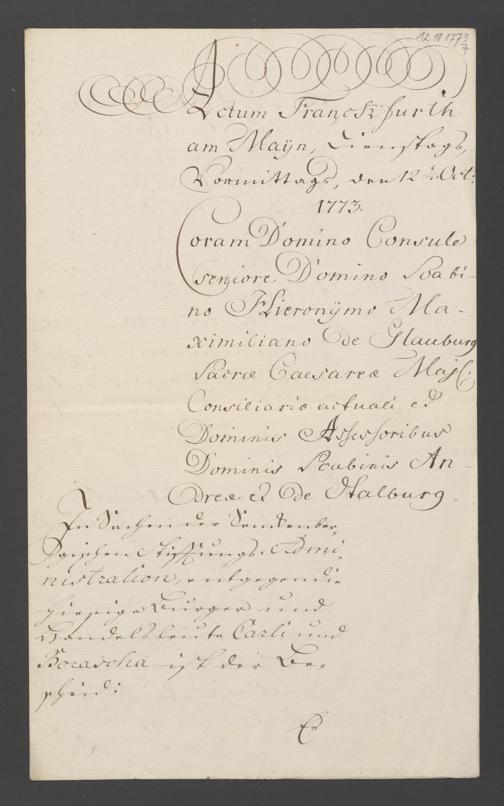 12 10 1773
7
Actum Franckfurth
am Maÿn, Dienstags,
Vormittags, den 12.t. Oct:
1773.
Coram Domino Consule
seniore. Domino Scabi-
no Hieronÿmo Ma-
ximiliano de Glauburg
Sacræ Caesareæ Maj:
Consiliario actuali et
Dominis Assessoribus
Dominis Scabinis An
dreæ et de Stalburg.
In Sachen der Senckenber-
gischen Stiftungs-Admi-
nistration, entgegen die
hiesige Burger und
Handelsleute Carli und
Borascha ist der Be-
scheid: